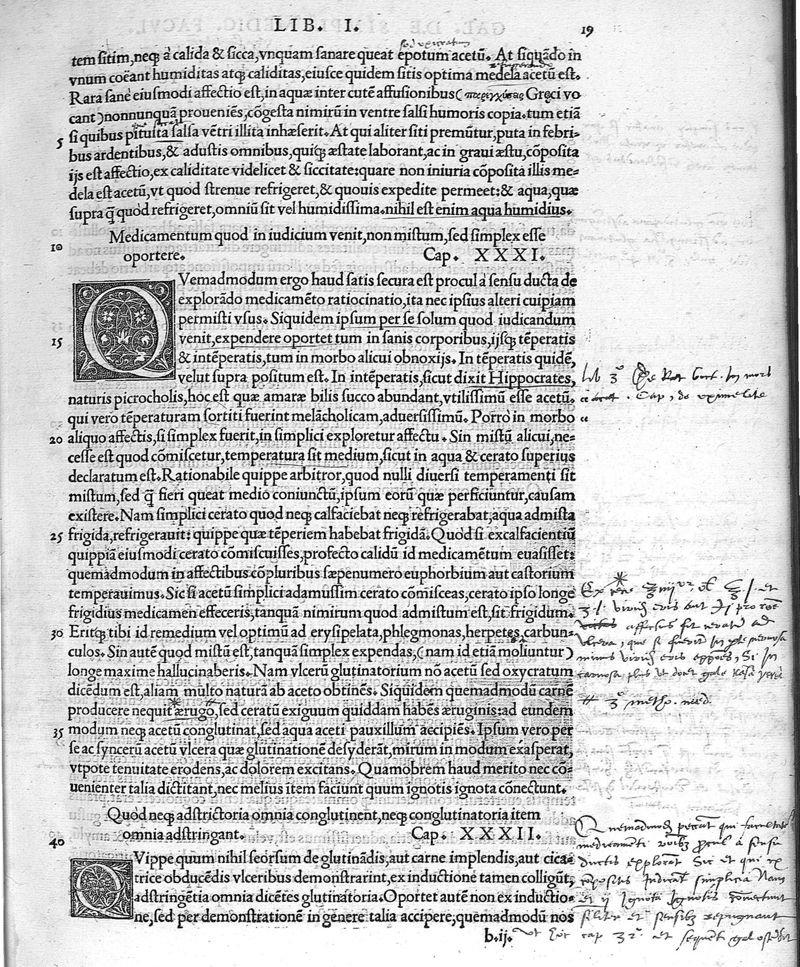 LIB. I. 19
tem sitim, neq; à calida & sicca, vnquam sanare queat epotum acetũ. At siquãdo in
vnum coëant humiditas atq; caliditas, eiusce quidem sitis optima medela acetũ est.
Rara sanè eiusmodi affectio est, in aquæ inter cutẽ affusionibus Gręci vo
cant) nonnunquã proueniẽs, cõgesta nimirũ in ventre salsi humoris copia. tum etiã
5 si quibus pituita salsa vẽtri illita inhæserit. At qui aliter siti premũtur, puta in febri-
bus ardentibus, & adustis omnibus, quiq; æstate laborant, ac in graui æstu, cõposita
ijs est affectio, ex caliditate videlicet & siccitate: quare non iniuria cõposita illis me-
dela est acetũ, vt quod strenue refrigeret, & quouis expedite permeet: & aqua, quæ
supra q̃ quod refrigeret, omniũ sit vel humidissima. nihil est enim aqua humidius.
Medicamentum quod in iudicium venit, non mistum, sed simplex esse
10 oportere. Cap. XXXI.
QVemadmodum ergo haud satis secura est procul à sensu ducta de
explorãdo medicamẽto ratiocinatio, ita nec ipsius alteri cuipiam
permisti vsus. Siquidem ipsum per se solum quod iudicandum
15 venit, expendere oportet tum in sanis corporibus, ijsq; tẽperatis
& intẽperatis, tum in morbo alicui obnoxijs. In tẽperatis quidẽ,
velut supra positum est. In intẽperatis, sicut dixit Hippocrates,
naturis picrocholis, hoc est quæ amaræ bilis succo abundant, vtilissimũ esse acetũ.
qui vero tẽperaturam sortiti fuerint melãcholicam, aduersissimũ. Porrò in morbo
20 aliquo affectis, si simplex fuerit, in simplici exploretur affectu. Sin mistũ alicui, ne-
cesse est quod cõmiscetur, temperatura sit medium, sicut in aqua & cerato superius
declaratum est. Rationabile quippe arbitror, quod nulli diuersi temperamenti sit
mistum, sed q̃ fieri queat medio coniunctũ, ipsum eorũ quæ perficiuntur, causam
existere. Nam simplici cerato quod neq; calfaciebat neq; refrigerabat, aqua admista
25 frigida, refrigerauit: quippe quæ tẽperiem habebat frigidã. Quod si excalfacientiũ
quippiã eiusmodi cerato cõmiscuisses, profecto calidũ id medicamẽtum euasisset:
quemadmodum in affectibus cõpluribus sæpenumero euphorbium aut castorium
temperauimus. Sic si acetũ simplici adamussim cerato cõmisceas, cerato ipso longe
frigidius medicamen effeceris: tanquã nimirum quod admistum est, sit frigidum.
30 Eritq; tibi id remedium vel optimũ ad erysipelata, phlegmonas, herpetes, carbun-
culos. Sin autẽ quod mistũ est, tanquã simplex expendas, (nam id etiã moliuntur)
longe maxime hallucinaberis. Nam vlcerũ glutinatorium nõ acetũ sed oxycratum
dicẽdum est, aliam multo naturã ab aceto obtinẽs. Siquidem quemadmodũ carnẽ
producere nequit ærugo, sed ceratũ exiguum quiddam habẽs æruginis: ad eundem
35 modum neq; acetũ conglutinat, sed aqua aceti pauxillum aecipiẽs. Ipsum vero per
se ac syncerũ acetũ vlcera quæ glutinationẽ desyderãt, mirum in modum exasperat,
vtpote tenuitate erodens, ac dolorem excitans. Quamobrem haud merito nec cõ-
uenienter talia dictitant, nec melius item faciunt quum ignotis ignota conectunt.
Quod neq; adstrictoria omnia conglutinent, neq; conglutinatoria item
40 omnia adstringant. Cap. XXXII.
QVippe quum nihil seorsum de glutinãdis, aut carne implendis, aut cica-
trice obducẽdis vlceribus demonstrarint, ex inductione tamen colligũt,
adstringẽtia omnia dicẽtes glutinatoria. Oportet autẽ non ex inductio-
ne, sed per demonstrationẽ in genere talia accipere, quemadmodũ nos
b.ij.